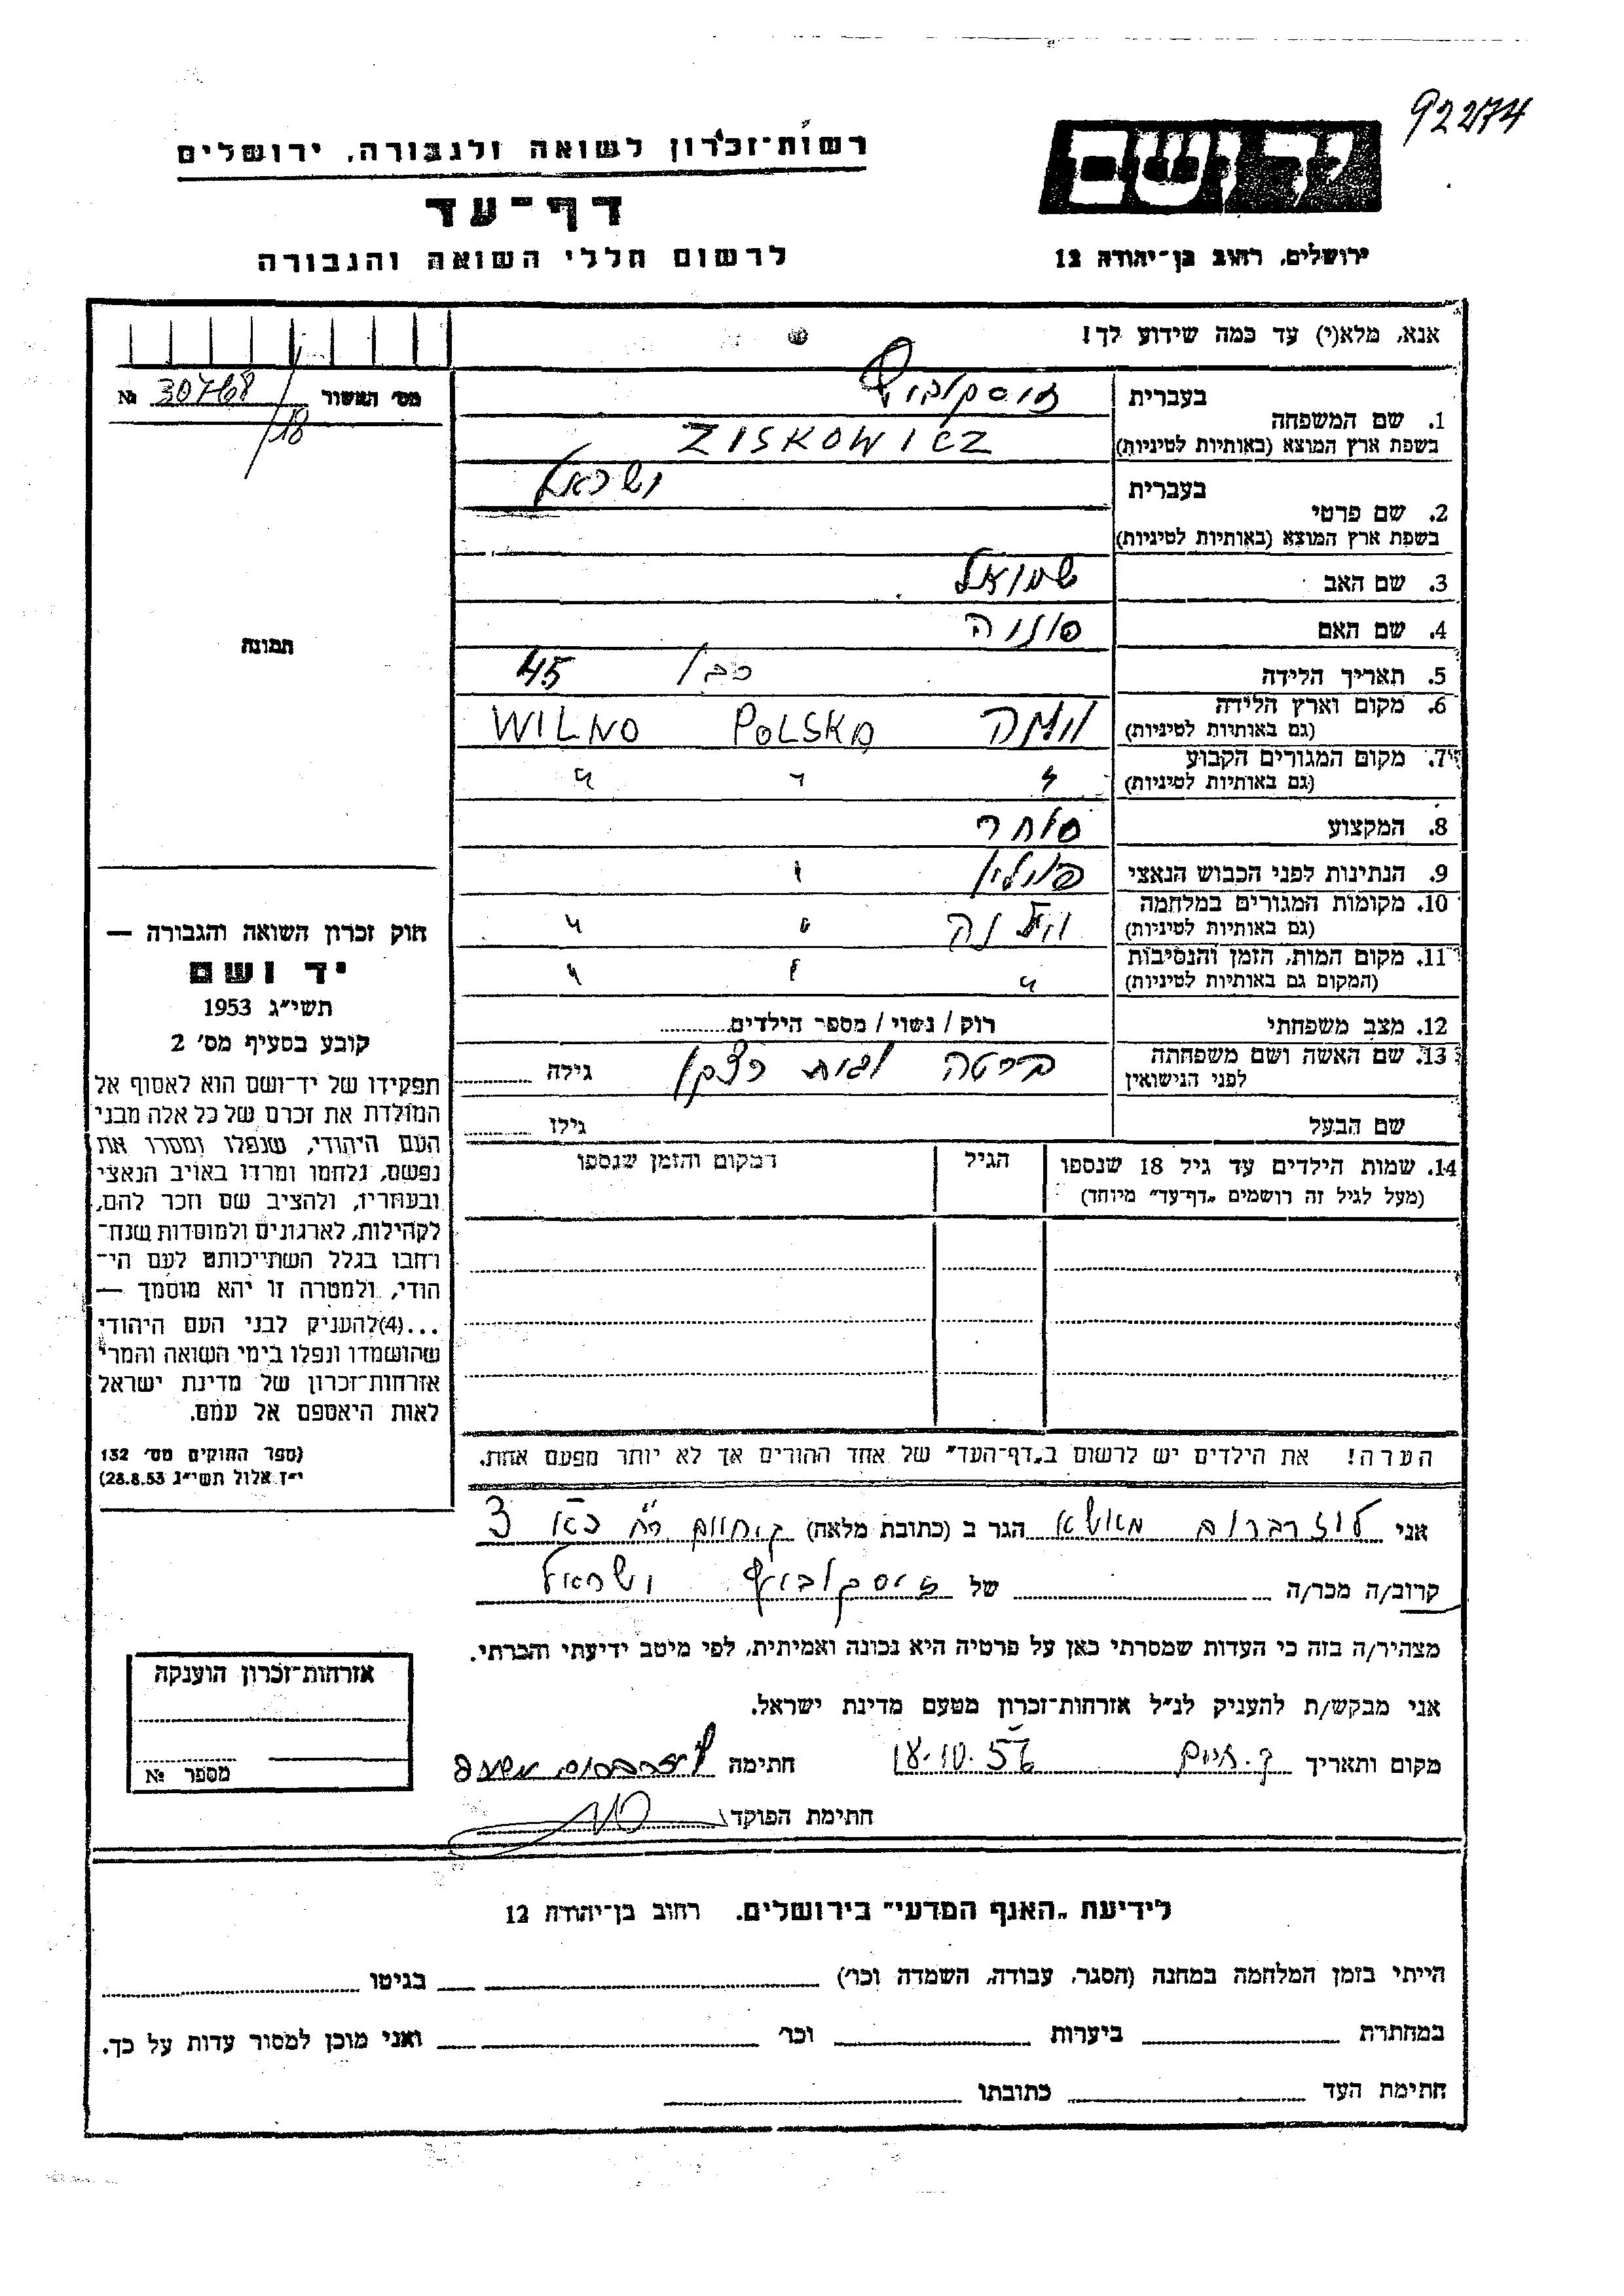 92274
יד ושם
ירושלים, רחוב בן־יהודה 12
רשות־זכרון לשואה ולגבורה, ירושלים
דף־עד
לרשום חללי השואה והגבורה
אנא, מלא(י) עד כמה שידוע לך!
מס' האשור 30768 №
18
בעברית
1. שם המשפחה
זיסקוביץ
בשפת ארץ המוצא (באותיות לטיניות) ZISKOWICZ
בעברית ישראל
2. שם פרטי
בשפת ארץ המוצא (באותיות לטיניות)
3. שם האב שמואל
4. שם האם
5. תאריך הלידה 45
6. מקום וארץ הלידה
(גם באותיות לטיניות) POLSKA WILNO
7. מקום המגורים הקבוע
(גם באותיות לטיניות) " " "
8. המקצוע סוחר
9. הנתינות לפני הכבוש הנאצי פולין
10. מקומות המגורים במלחמה
(גם באותיות לטיניות) וילנה " "
11. מקום המות, הזמן והנסיבות
(המקום גם באותיות לטיניות) " " "
12. מצב משפחתי רוק / נשוי / מספר הילדים
13. שם האשה ושם משפחתה
לפני הנישואין ברטה לבית גילה
שם הבעל גילו
14. שמות הילדים עד גיל 18 שנספו הגיל המקום והזמן שנספו
(מעל לגיל זה רושמים „דף־עד" מיוחד)
הערה! את הילדים יש לרשום ב„דף־העד" של אחד ההורים אך לא יותר מפעם אחת.
תמונה
חוק זכרון השואה והגבורה —
יד ושם
תשי"ג 1953
קובע בסעיף מס' 2
תפקידו של יד־ושם הוא לאסוף אל
המולדת את זכרם של כל אלה מבני
העם היהודי, שנפלו ומסרו את
נפשם, נלחמו ומרדו באויב הנאצי
ובעוזריו, ולהציב שם וזכר להם,
לקהילות, לארגונים ולמוסדות שנח־
רחבו בגלל השתייכותם לעם הי־
הודי, ולמטרה זו יהא מוסמך —
...(4)להעניק לבני העם היהודי
שהושמדו ונפלו בימי השואה והמרי
אזרחות־זכרון של מדינת ישראל
לאות היאספם אל עמם.
(ספר החוקים מס' 132
י"ז אלול תשי"ג 28.8.53)
אני הגר ב (כתובת מלאה) 3
קרוב/ה מכר/ה של זיסקוביץ ישראל
מצהיר/ה בזה כי העדות שמסרתי כאן על פרטיה היא נכונה ואמיתית, לפי מיטב ידיעתי והכרתי.
אני מבקש/ת להעניק לנ"ל אזרחות־זכרון מטעם מדינת ישראל.
מקום ותאריך ק. חיים 18.10.56 חתימה
חתימת הפוקד
אזרחות־זכרון הוענקה
מספר №
לידיעת „האגף המדעי" בירושלים. רחוב בן־יהודה 12
הייתי בזמן המלחמה במחנה (הסגר, עבודה, השמדה וכו') בגיטו
במחתרת ביערות וכו' ואני מוכן למסור עדות על כך.
חתימת העד כתובתו